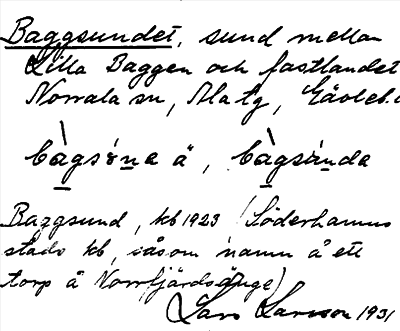 Baggsundet, sund mellan
Lilla Baggen och fastlandet
Norrala sn, Ala tg, Gävleb.
bàgsóna å, bàgsúnda
Baggsund, kb 1923 (Söderhamns
stads kb, såsom namn å ett
torp å Norrfjärdsänge)
Lars Larsson 1931